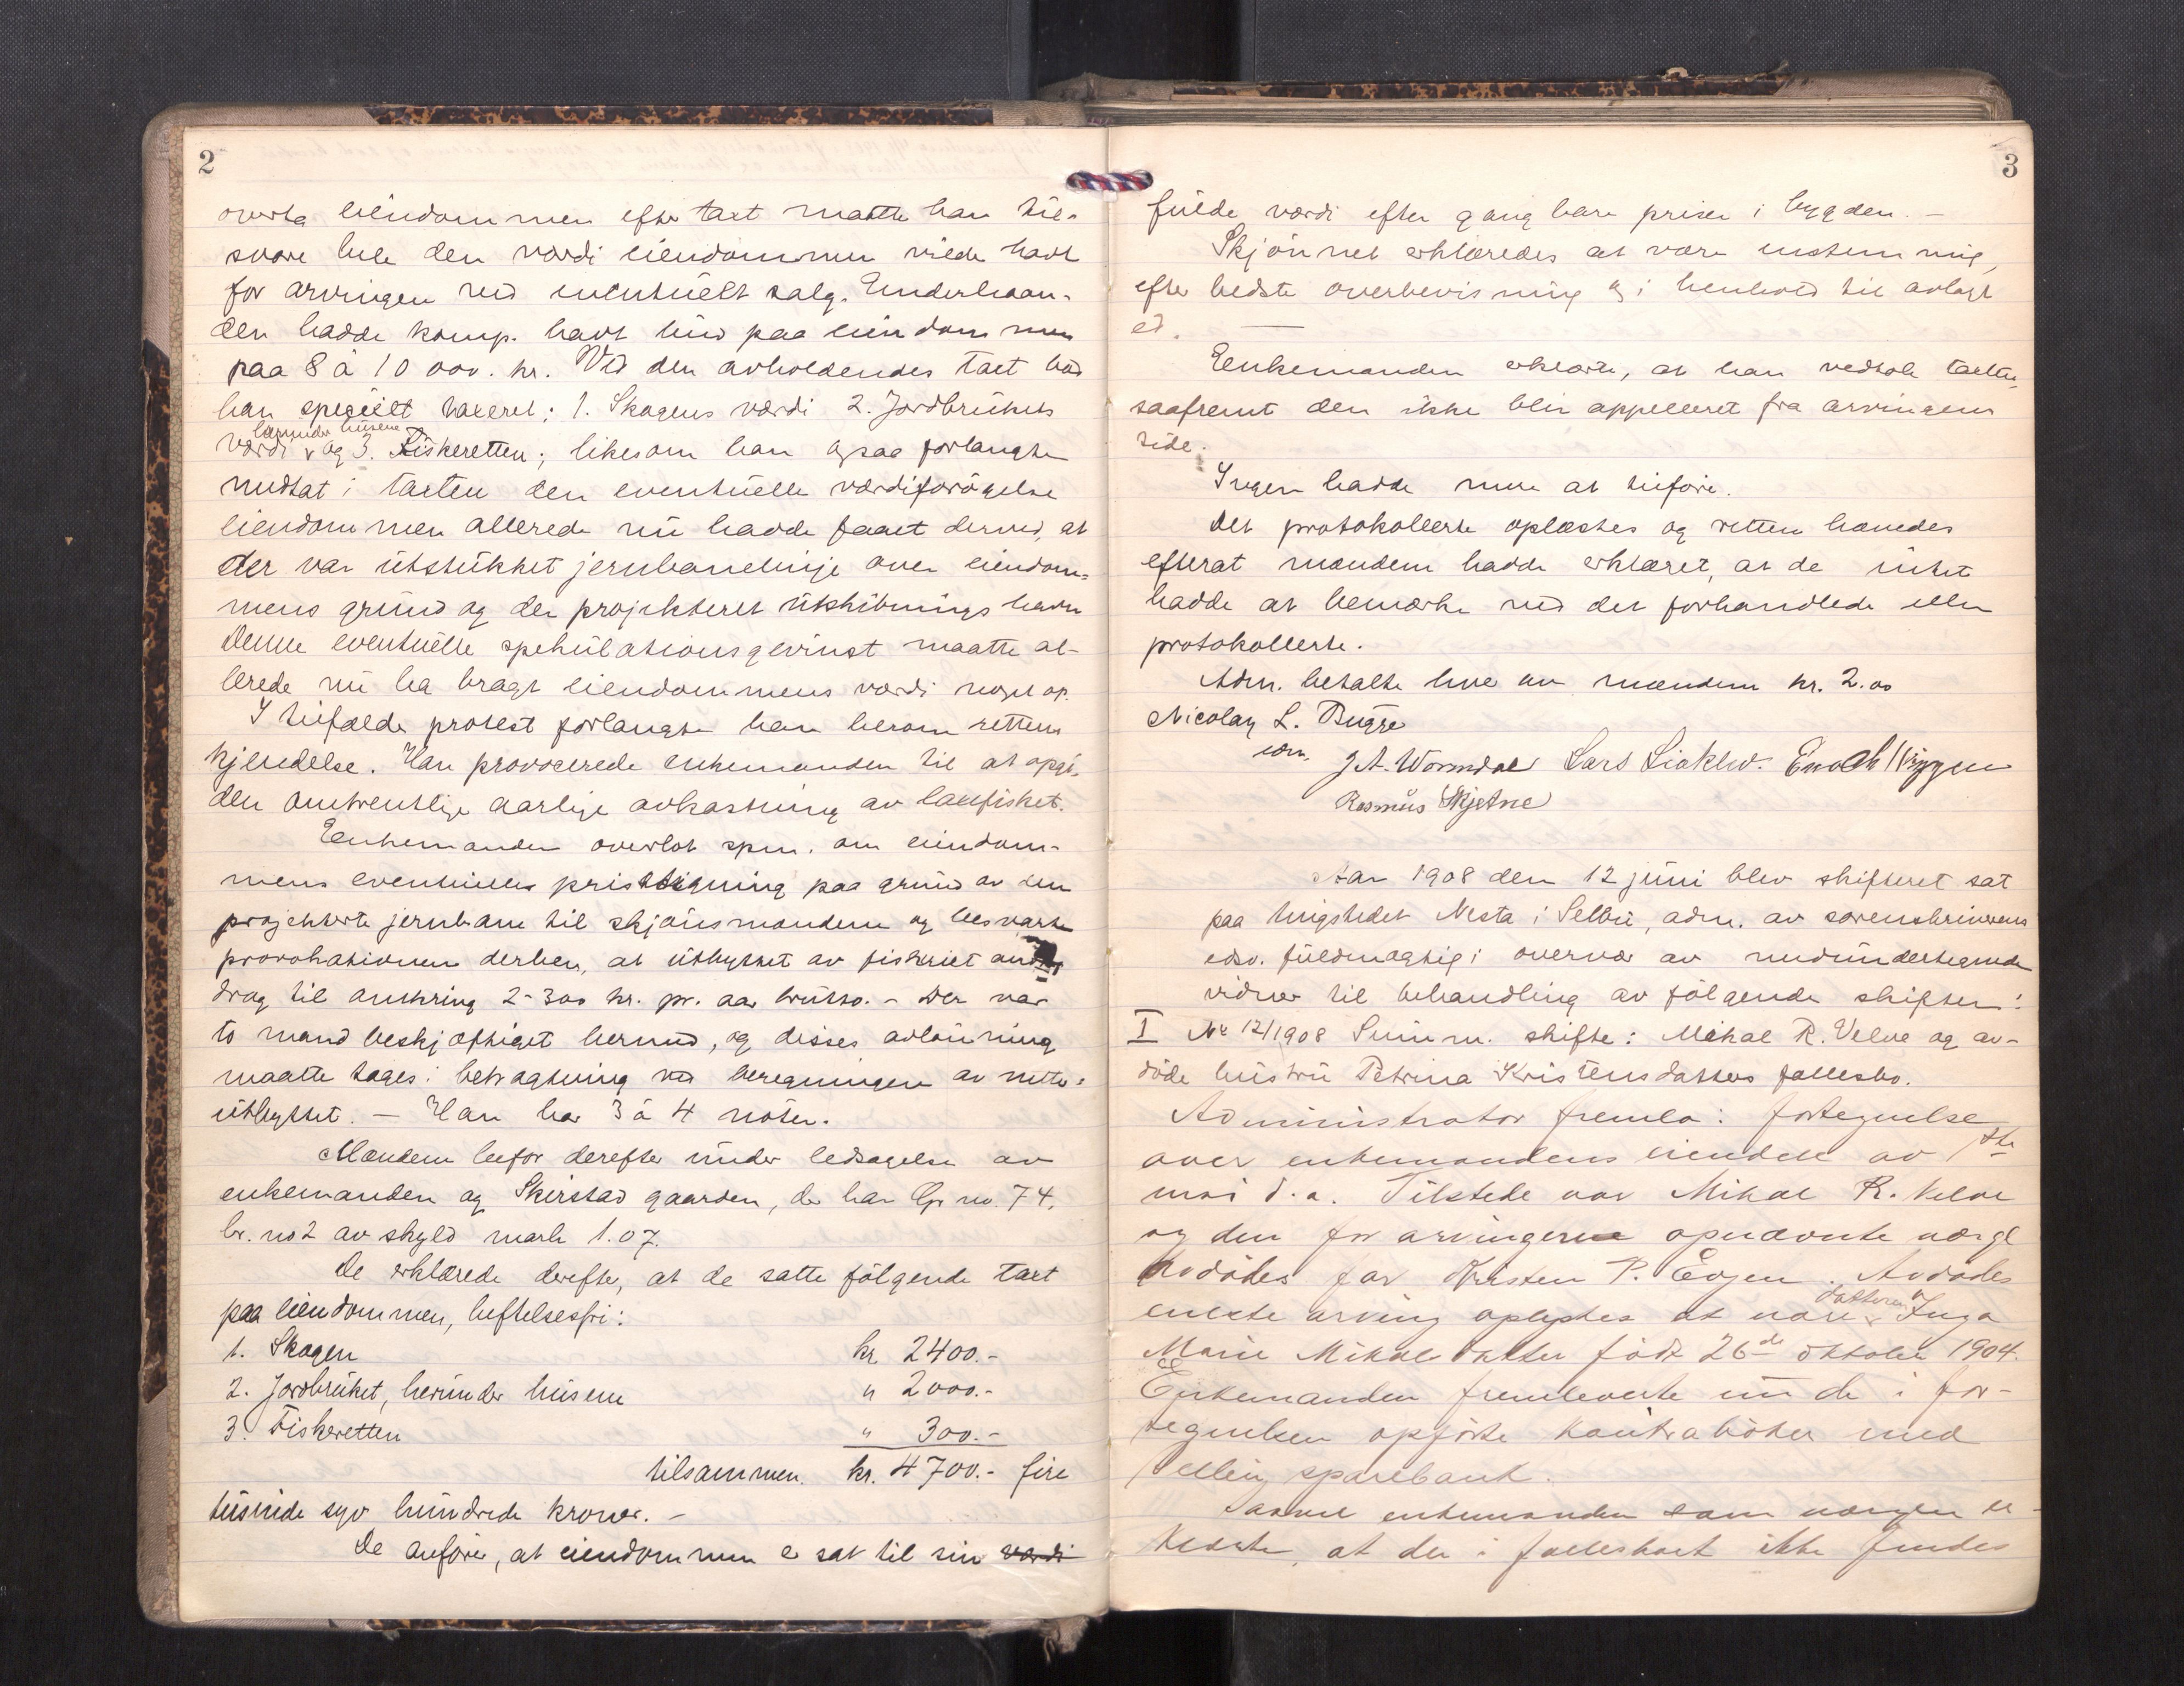 2
overta eiendommen efter taxt maatte han til-
svare hele den værdi eiendommen vilde havt
for arvingen ved eventuelt salg. Underhaan-
den hadde komp. havt bud paa eiendommen
paa 8 à 10 000. kr. Ved den avholdendes taxt bad
han specielt taxeret: 1. Skogens værdi 2. Jordbrukets
herunder husene
værdi og 3. Fiskeretten; likesom han ogsaa forlangte
medtat i taxten den eventuelle værdiforøgelse
eiendommen allerede nu hadde faaet derved, at
der var utstukket jernbanelinje over eiendom-
mens grund og der projekteret utskibnings havn
Denne eventuelle spekulationsgevinst maatte al-
lerede nu ha bragt eiendommens værdi noget op.
I tilfælde protest forlangte han herom rettens
kjendelse. Han provocerede enkemanden til at opgi
den omtrentlige aarlige avkastning av laxfisket.
Enkemanden overlot spm. om eiendom-
mens eventuelle prisstigning paa grund av den
projekterte jernbane til skjønsmændene og besvarte
provokationen derhen, at utbyttet av fiskeriet
drag til omkring 2-300 kr. pr. aar brutto. - Der var
to mand beskjæftiget hermed, og disses avlønning
maatte tages i betragtning ved beregningen av netto-
utbyttet. - Han har 3 à 4 nøter.
Mændene befor derefter under ledsagelse av
enkemanden og Skirstad gaarden, der har Gr no. 74,
br. no 2 av skyld mark 1.07.
De erklærede derefter, at de satte følgende taxt
paa eiendommen, heftelsesfri:
1. Skogen kr 2400.-
2. Jordbruket, herunder husene " 2000.-
3. Fiskeretten " 300.-
tilsammen kr. 4700.- fire
tusinde syv hundrede kroner. -
De anfører, at eiendommen er sat til sin værdi
3
fulde værdi efter gangbare priser i bygden. -
Skjønnet erklæredes at være enstemmig,
efter bedste overbevisning og i henhold til avlagt
ed.
Enkemanden erklærte, at han vedtok taxten,
saafremt den ikke blir appelleret fra arvingens
side.
Ingen hadde mere at tilføie.
Det protokollerte oplæstes og retten hævedes
efterat mændene hadde erklæret, at de intet
hadde at bemærke ved det forhandlede eller
protokollerte.
Adm. betalte hver av mændene kr. 2.00
Nicolay L. Bugge
J.A. Wormdal Lars Liaklev. Enoch Viggen
Rasmus Skjetne
Aar 1908 den 12 juni blev skifteret sat
paa tingstedet Nesta i Selbu, adm. av sorenskriverens
edsv. fuldmægtig i overvær av medundertegnede
vidner til behandling av følgende skifter:
I No 12/1908 Summ. skifte: Mikal R. Velve og av-
døde hustru Petrina Kristensdatters fællesbo.
Administrator fremla: fortegnelse
over enkemandens eiendele av 1ste
mai d.a. Tilstede var Mikal R. Velve
og den for arvingerne opnævnte værge
Avdødes far Kristen P. Evjen. Avdødes
datteren
eneste arving oplystes at være Inga
Marie Mikalsdatter født 26de oktober 1904.
Enkemanden fremleverte nu de i for-
tegnelsen opførte kontrabøker med
Selbu sparebank.
Saavel enkemanden som værgen er-
klærte, at der i fællesboet ikke findes